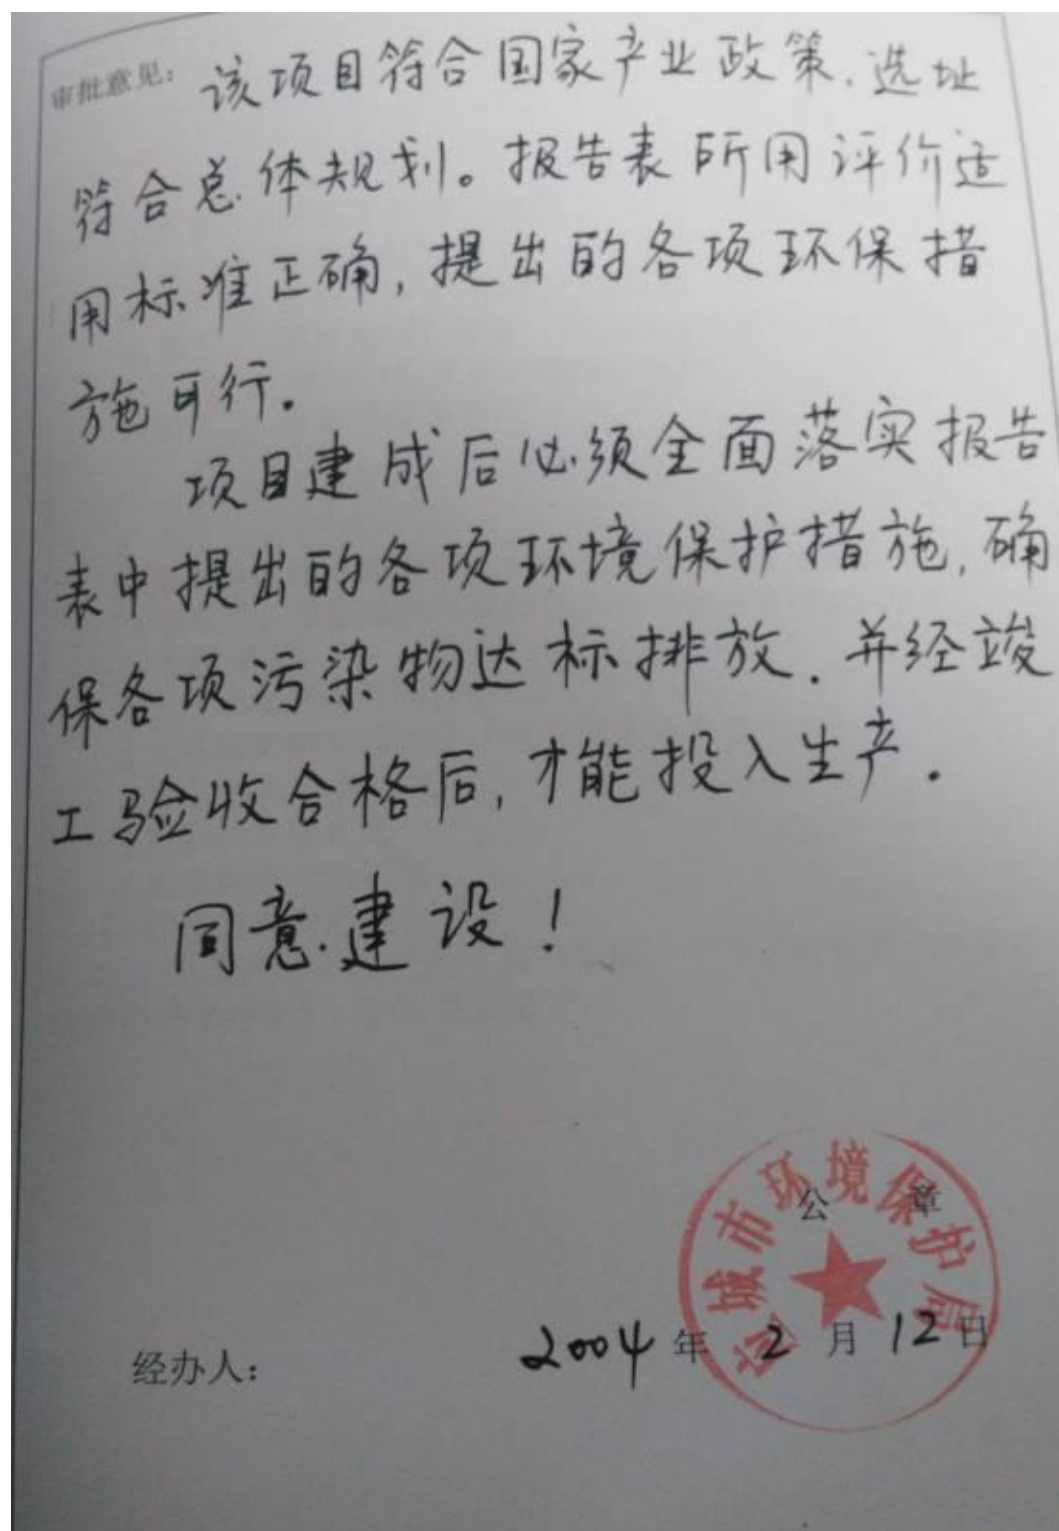 审批意见：该项目符合国家产业政策.选址
符合总体规划。报告表所用评价适
用标准正确,提出的各项环保措
施可行。
项目建成后必须全面落实报告
表中提出的各项环境保护措施,确
保各项污染物达标排放.并经竣
工验收合格后,才能投入生产.
同意建设!
城市环境保护局
公章
经办人：
2004年2月12日